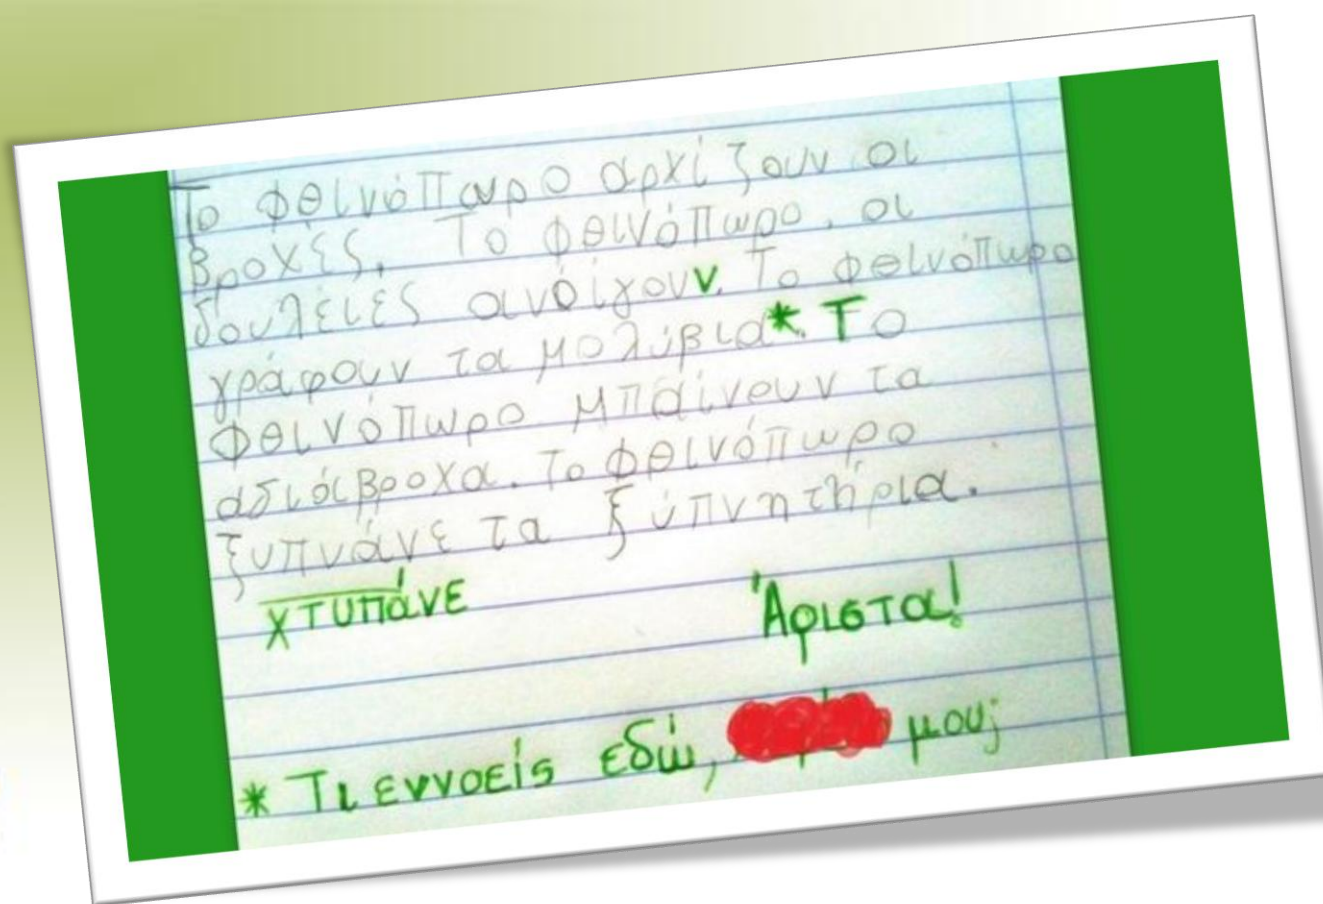 Το φθινόπωρο αρχίζουν οι
βροχές. Το φθινόπωρο, οι
δουλειές ανοίγουν. Το φθινόπωρο
γράφουν τα μολύβια*. Το
φθινόπωρο μπαίνουν τα
αδιάβροχα. Το φθινόπωρο
ξυπνάνε τα ξύπνητήρια.
χτυπάνε Άριστα!
* Τι εννοείς εδώ, μου;